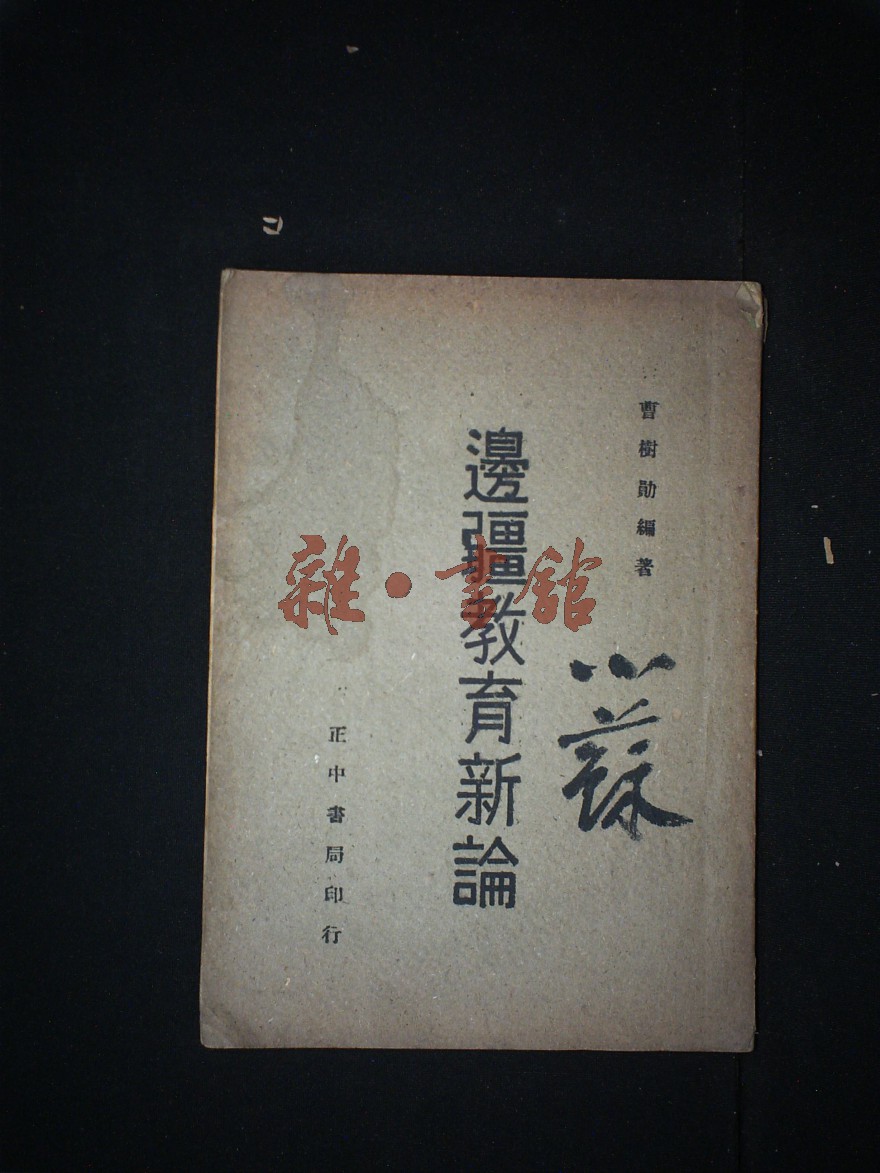 曹樹勛編著
邊疆教育新論
正中書局印行
雜·書館